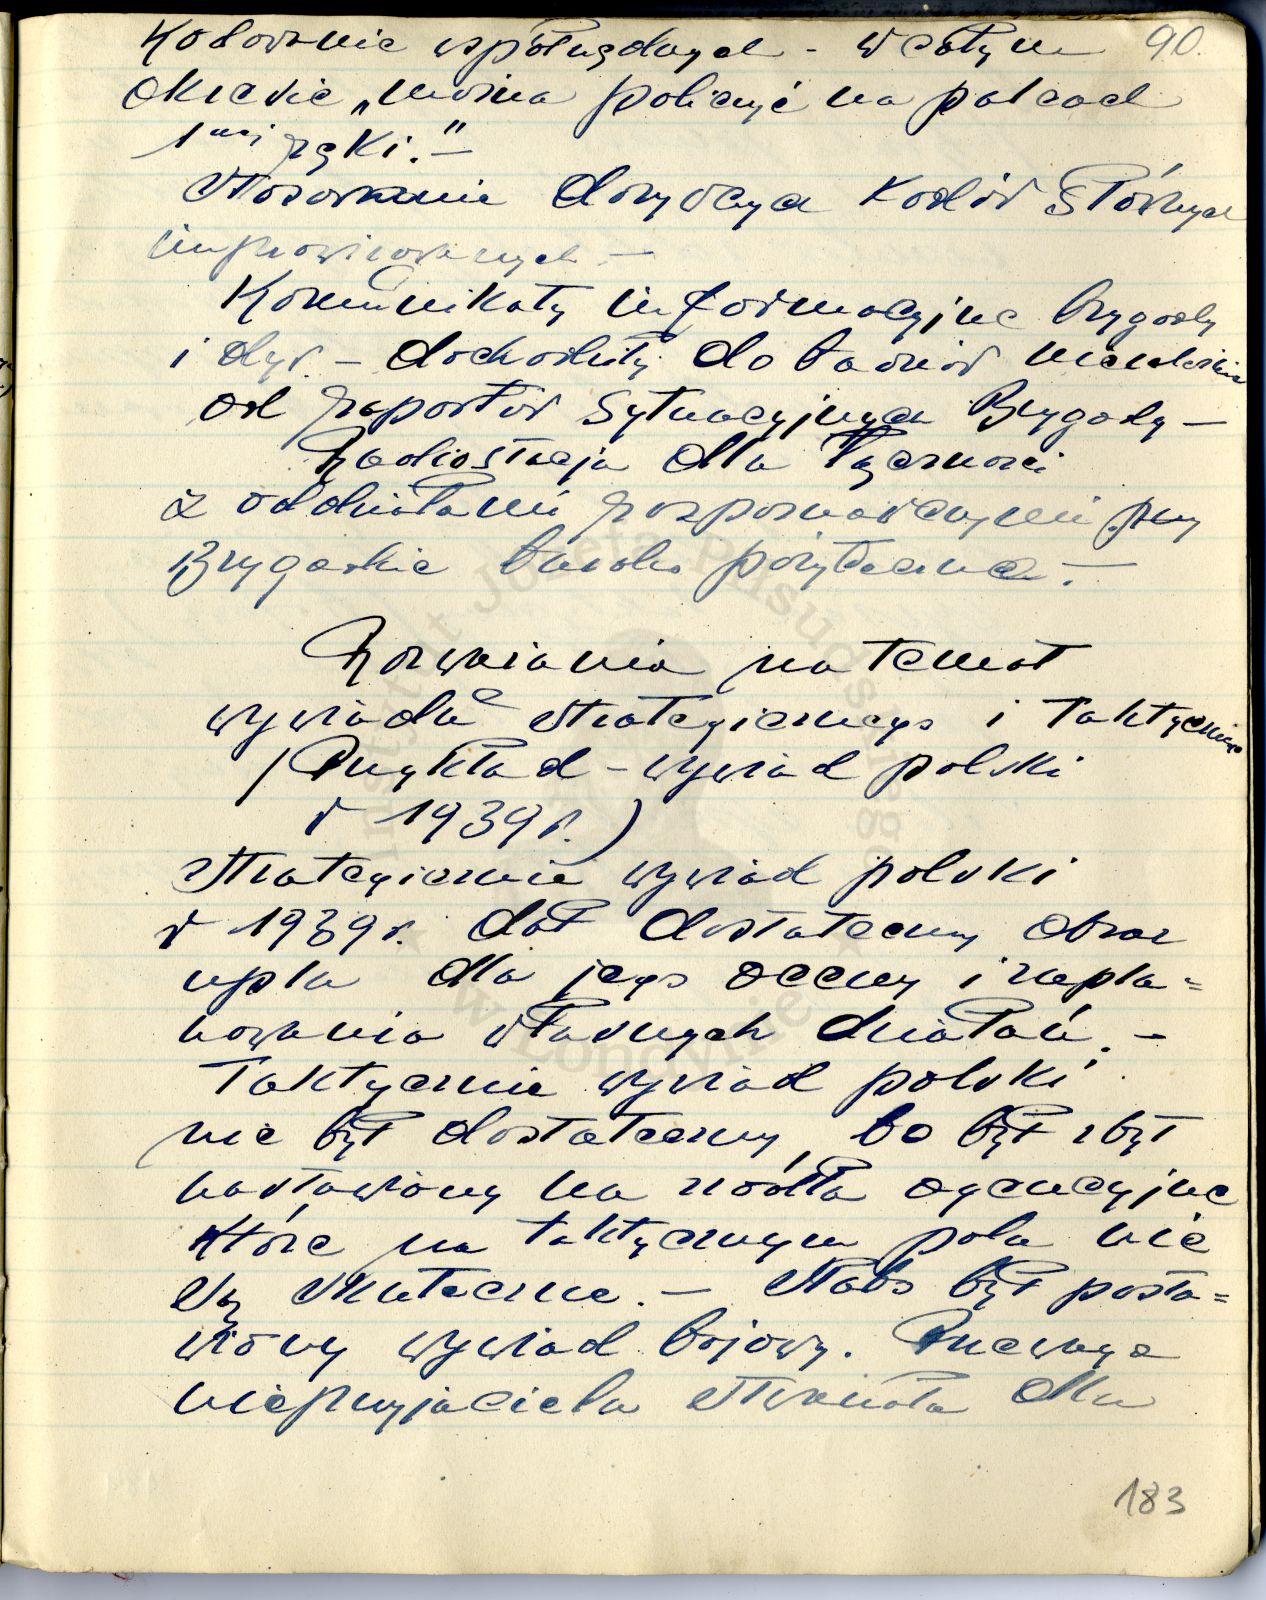 Kodowanie współrzędnych - w całym 90.
okresie „można policzyć na palcach
1nej ręki." -
Stosowanie dorywcze kodów słównych
improwizowanych. -
Komunikaty informacyjne brygady
i dyw. - dochodziły do baonów niezależnie
od raportów sytuacyjnych Brygady -
Radiostacja dla łączności
z oddziałami rozpoznawczymi przy
Brygadzie bardzo pożyteczna. -
Rozważania na temat
wywiadu strategicznego i taktycznego
(Przykład - wywiad polski
w 1939 r.)
Strategicznie wywiad polski
w 1939 r. dał dostateczny obraz
npla dla jego oceny i zapla=
nowania własnych działań. -
Taktycznie wywiad polski
nie był dostateczny, bo był zbyt
nastawiony na źródła agencyjne
które na taktycznym polu nie
są skuteczne. - Słabo był posta=
wiony wywiad bojowy. Przewaga
nieprzyjaciela stwarzała dla
183
Instytut Józefa Piłsudskiego
w Londynie